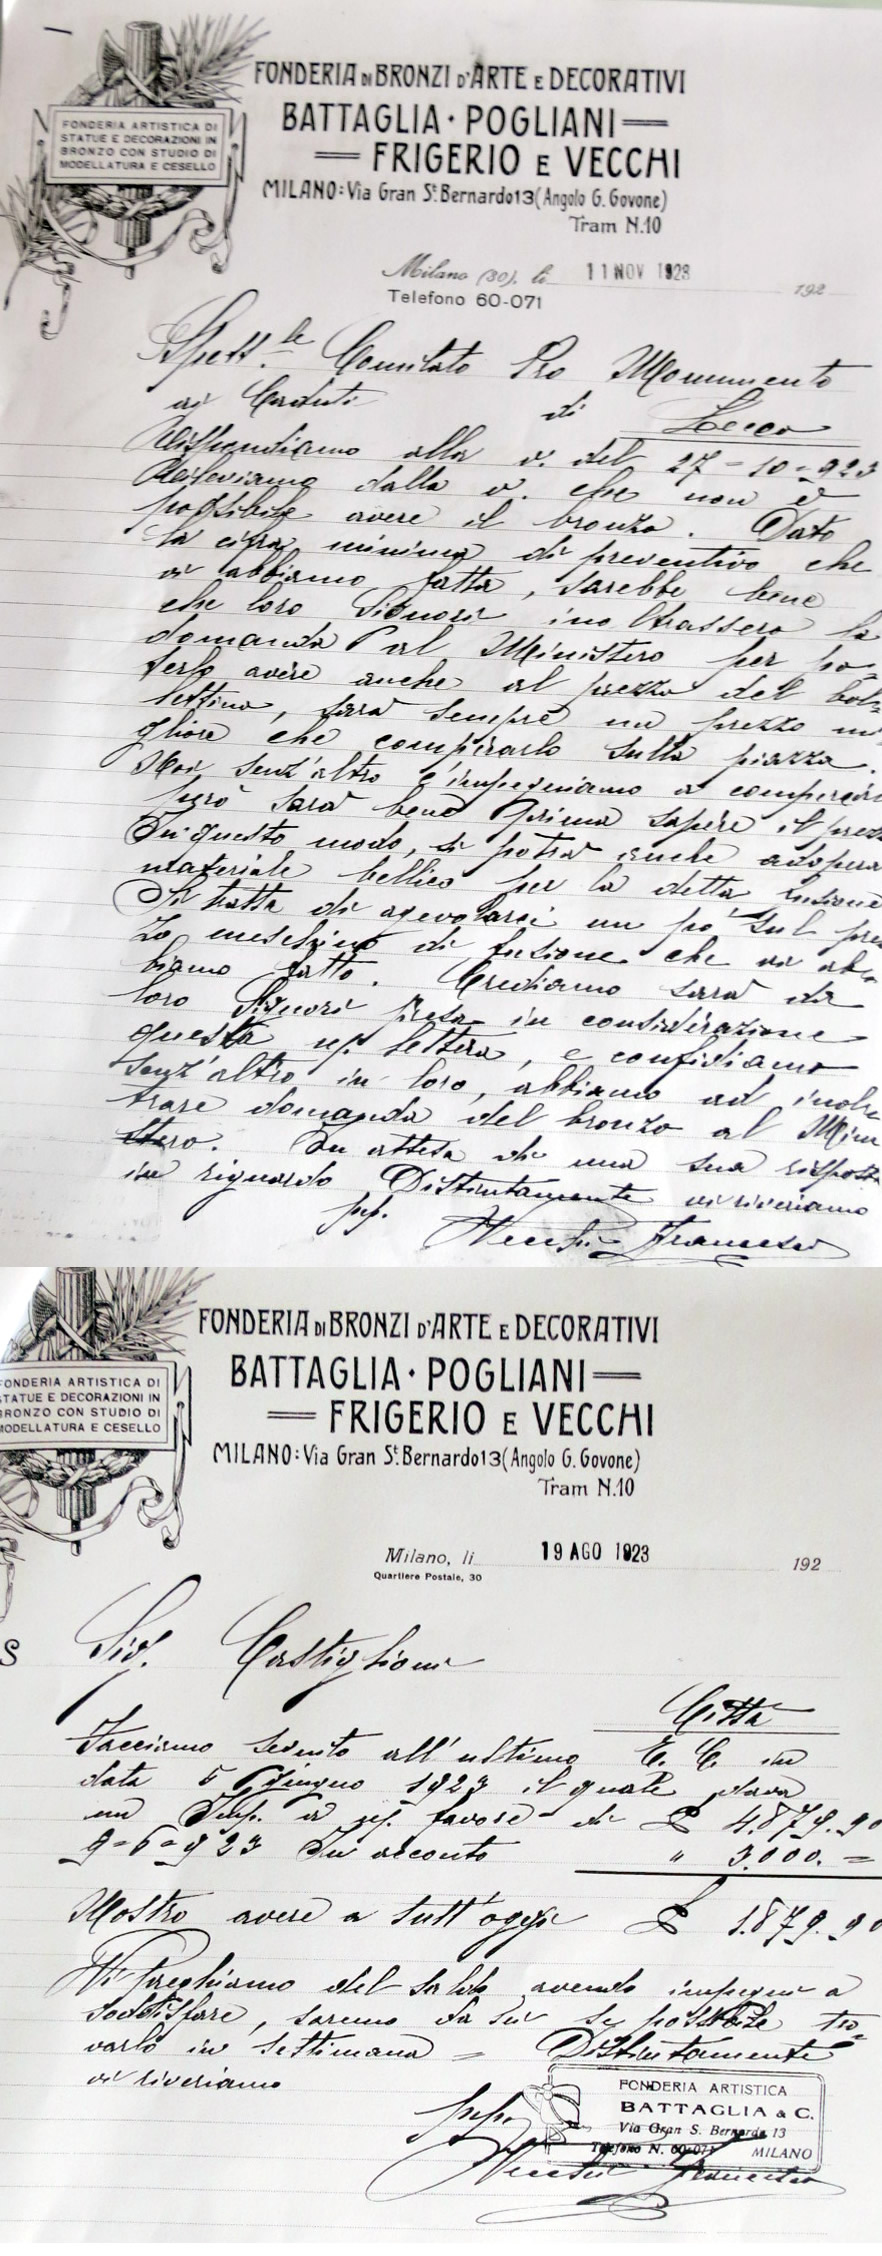 FONDERIA ARTISTICA DI
STATUE E DECORAZIONI IN
BRONZO CON STUDIO DI
MODELLATURA E CESELLO
FONDERIA DI BRONZI D'ARTE E DECORATIVI
BATTAGLIA · POGLIANI
FRIGERIO E VECCHI
MILANO: Via Gran St. Bernardo 13 (Angolo G. Govone)
Tram N. 10
Milano (30), li 11 NOV 1923 192
Telefono 60-071
Spett.le Comitato Pro Monumento
ai Caduti di Lecco
Rispondiamo alla v. del 27-10-923
Rileviamo dalla v. che non è
possibile avere il bronzo. Dato
la cifra minima di preventivo che
vi abbiamo fatta, sarebbe bene
che loro Signori inoltrassero la
domanda al Ministero per po-
terlo avere anche al prezzo del bol-
lettino, sarà sempre un prezzo mi-
gliore che comperarlo sulla piazza.
Noi senz'altro c'impegniamo a comperar
però sarà bene prima sapere il prezz
In questo modo, si potrà anche adopera
materiale bellico per la detta fusione
Si tratta di agevolarci un po' sul prez
zo meschino di fusione che vi ab-
biamo fatto. Crediamo sarà da
loro Signori presa in considerazione
questa ns. lettera, e confidiamo
senz'altro in loro, abbiamo ad inol-
trare domanda del bronzo al Mini
stero. In attesa di una sua rispost
in riguardo Distintamente vi riveriamo
pp. Vecchi Francesco
FONDERIA ARTISTICA DI
STATUE E DECORAZIONI IN
BRONZO CON STUDIO DI
MODELLATURA E CESELLO
FONDERIA DI BRONZI D'ARTE E DECORATIVI
BATTAGLIA · POGLIANI
FRIGERIO E VECCHI
MILANO: Via Gran St. Bernardo 13 (Angolo G. Govone)
Tram N. 10
Milano, li 19 AGO 1923 192
Quartiere Postale, 30
S
Sig. Castiglioni
Città
Facciamo seguito all'ultimo E. C. in
data 5 Giugno 1923 il quale dava
un Imp. a ns. favore di £ 4.879.90
9-6-923 In acconto " 3.000.=
Nostro avere a tutt'oggi £ 1.879.90
Vi preghiamo del saldo avendo impegni a
soddisfare, saremo da Lei se possibile tro-
varlo in settimana = Distintamente
vi riveriamo
FONDERIA ARTISTICA
BATTAGLIA & C.
Via Gran S. Bernardo 13
Telefono N. 60-071 MILANO
pp. Vecchi Francesco